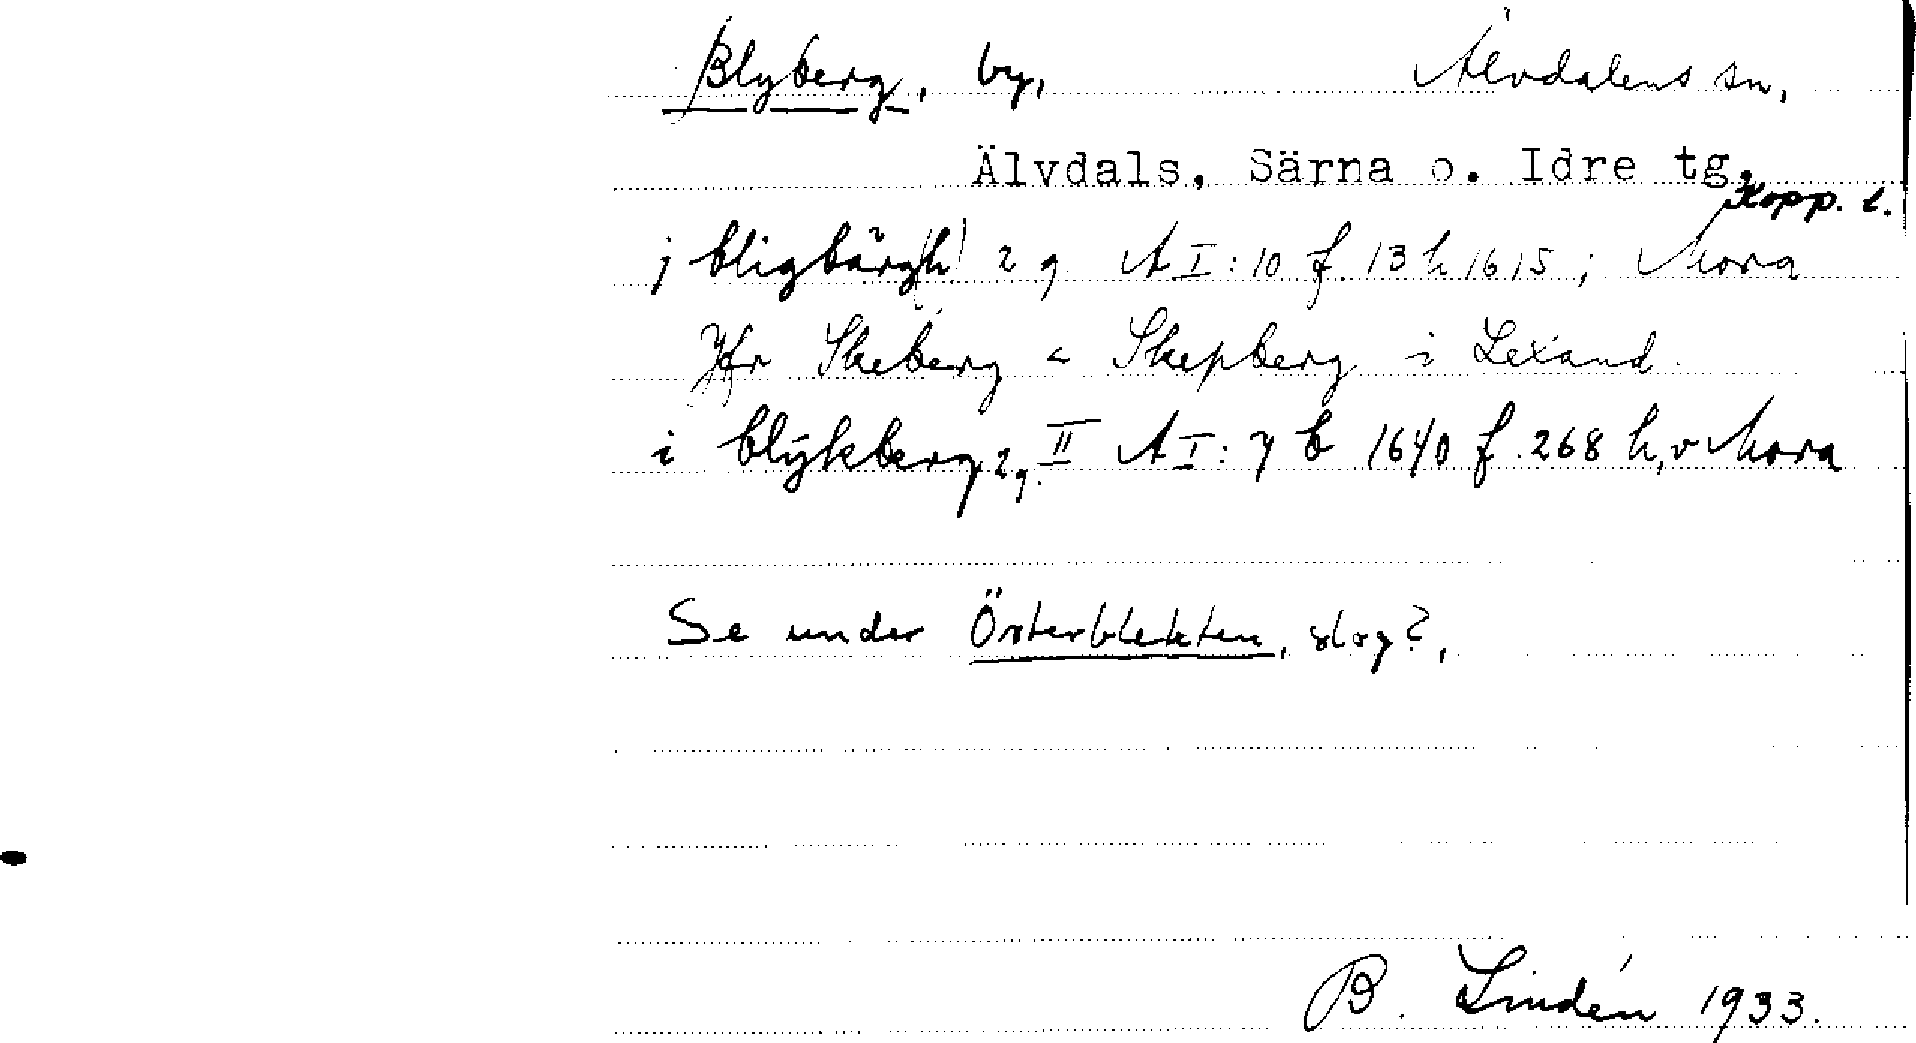 Blyberg, by, Älvdalens sn,
Älvdals, Särna o. Idre tg.
Kopp. l.
j bligbärg(h) 2 g A I: 10 f 13 h 1615; Mora
Jfr Skeberg < Skepberg i Lexand.
i blÿkberg 2 g. II A I: 7 b 1640 f. 268 h, v Mora
Se under Österblekten, slog?,
B. Lindén 1933.